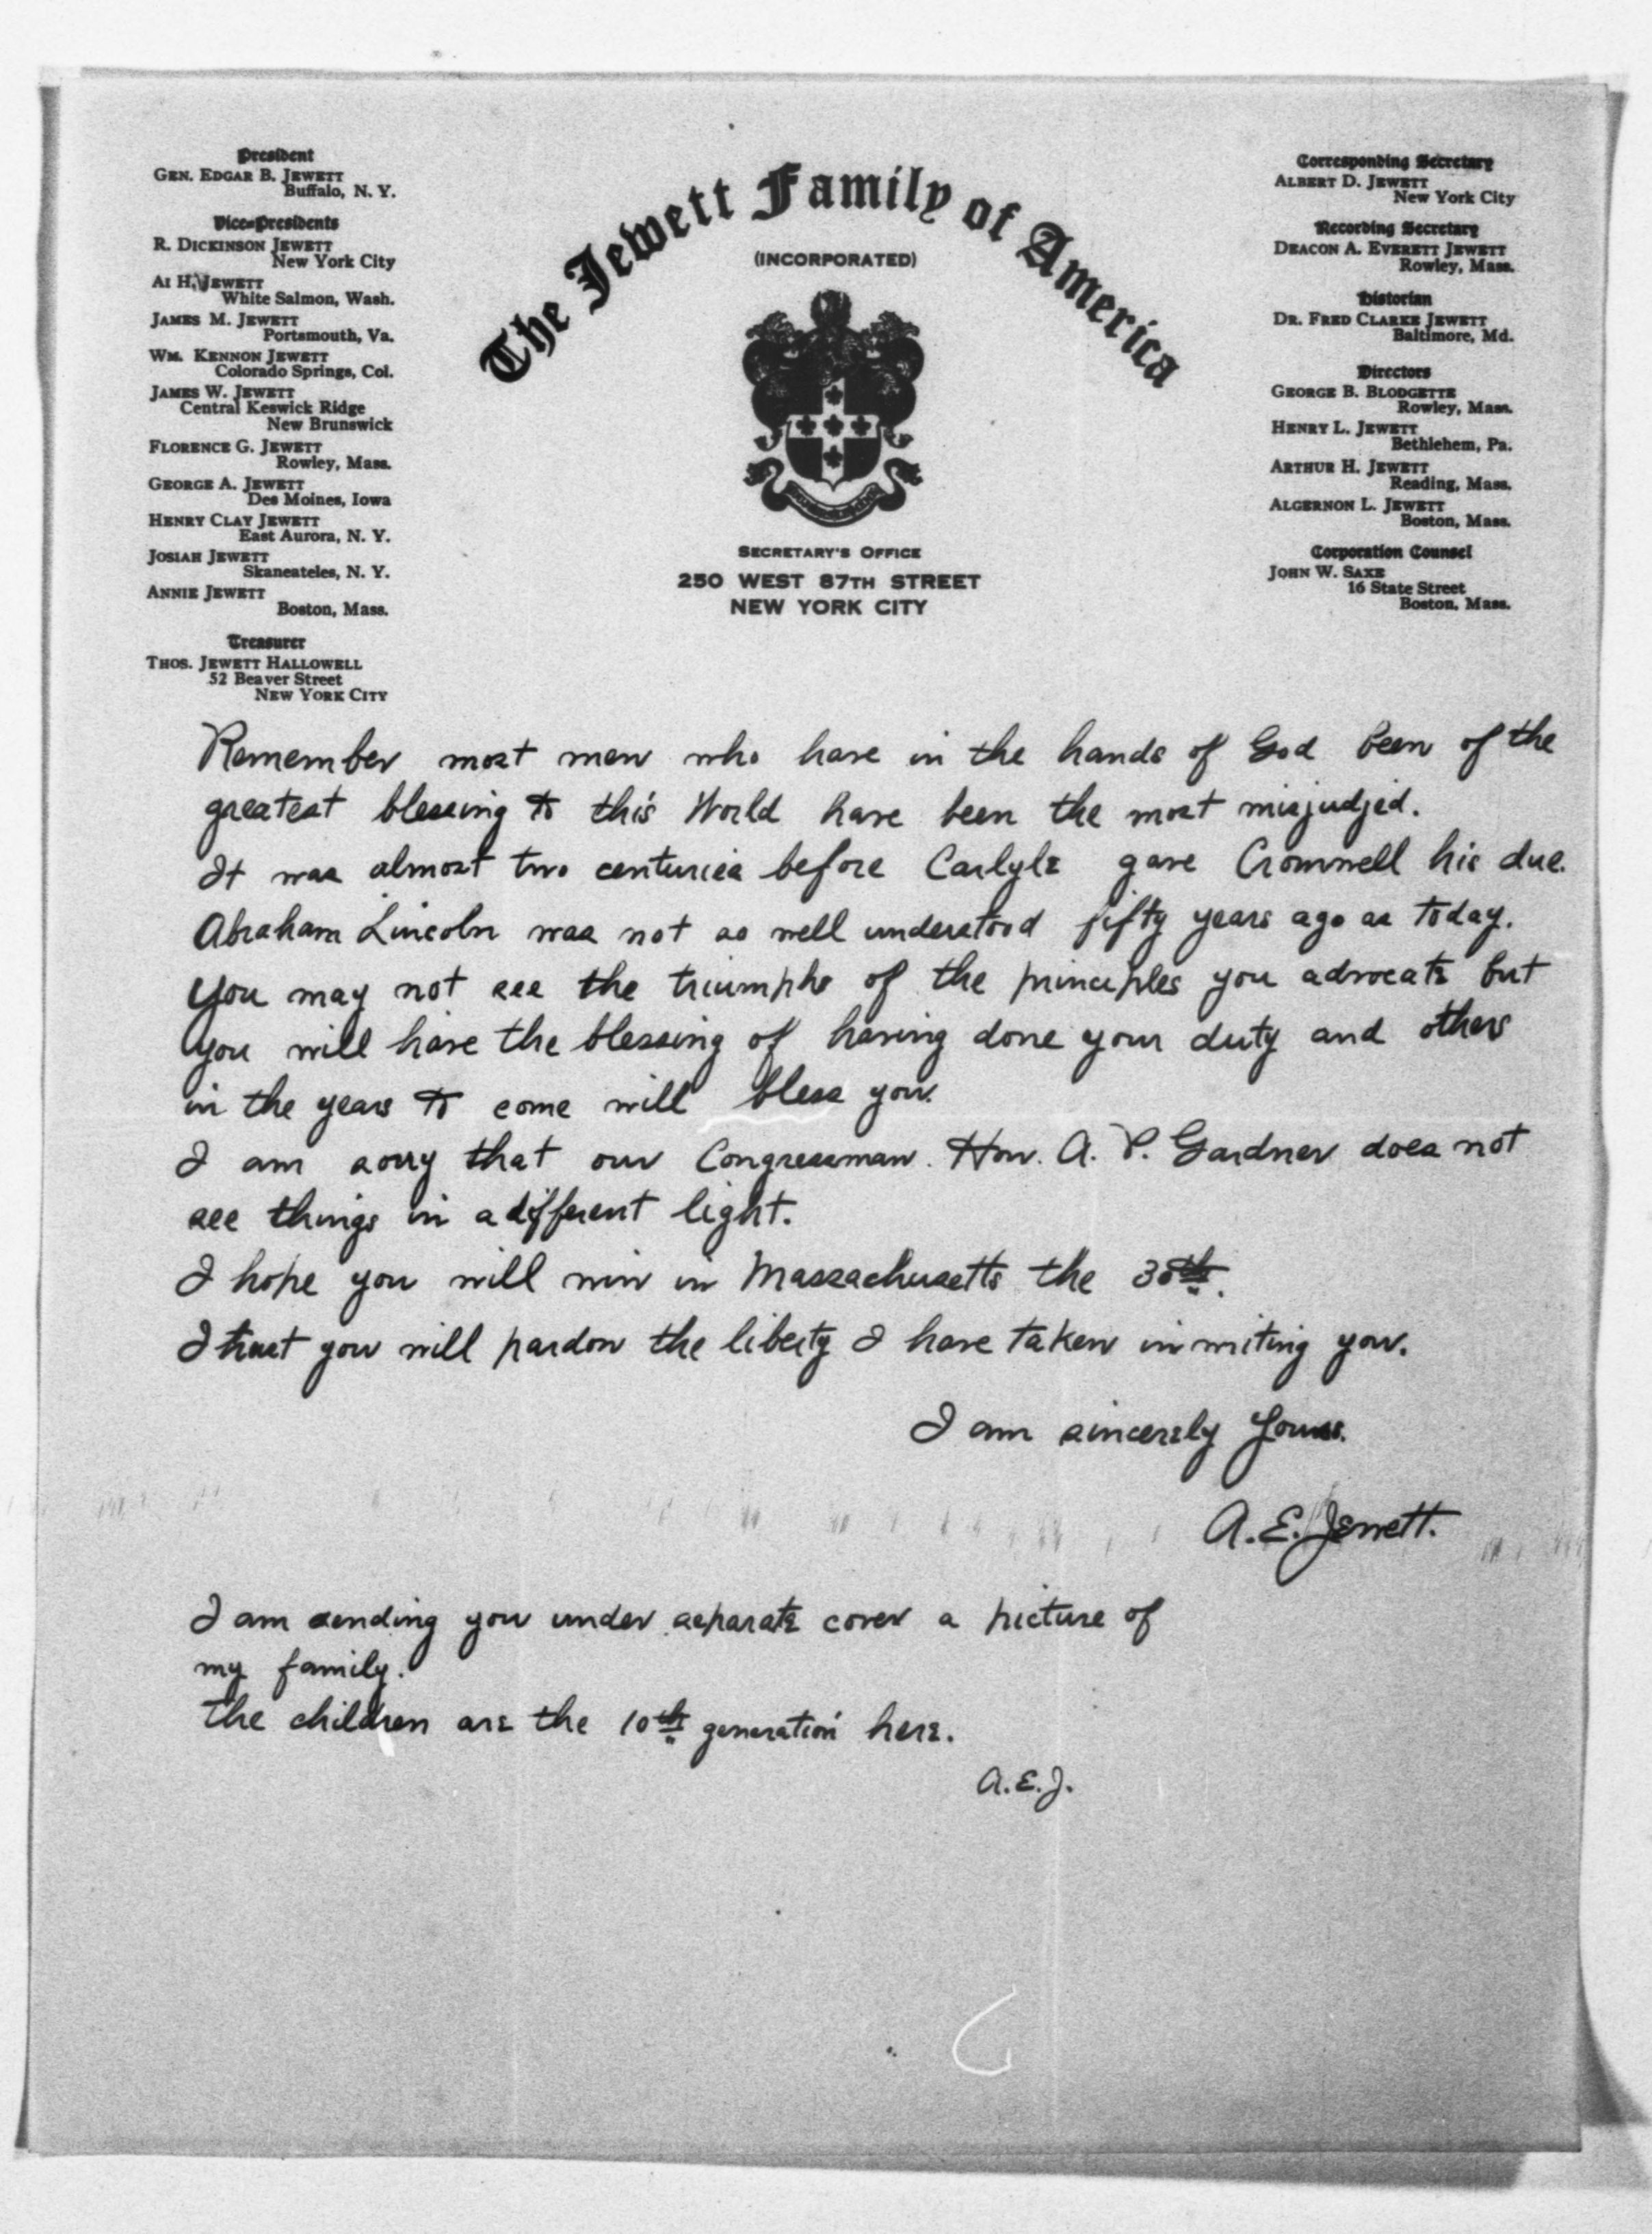 President
GEN. EDGAR B. JEWETT
Buffalo, N. Y.
Vice-Presidents
R. DICKINSON JEWETT
New York City
AI H. JEWETT
White Salmon, Wash.
JAMES M. JEWETT
Portsmouth, Va.
WM. KENNON JEWETT
Colorado Springs, Col.
JAMES W. JEWETT
Central Keswick Ridge
New Brunswick
FLORENCE G. JEWETT
Rowley, Mass.
GEORGE A. JEWETT
Des Moines, Iowa
HENRY CLAY JEWETT
East Aurora, N. Y.
JOSIAH JEWETT
Skaneateles, N. Y.
ANNIE JEWETT
Boston, Mass.
Treasurer
THOS. JEWETT HALLOWELL
52 Beaver Street
NEW YORK CITY
The Jewett Family of America
(INCORPORATED)
SECRETARY'S OFFICE
250 WEST 87TH STREET
NEW YORK CITY
Corresponding Secretary
ALBERT D. JEWETT
New York City
Recording Secretary
DEACON A. EVERETT JEWETT
Rowley, Mass.
Historian
DR. FRED CLARKE JEWETT
Baltimore, Md.
Directors
GEORGE B. BLODGETTE
Rowley, Mass.
HENRY L. JEWETT
Bethlehem, Pa.
ARTHUR H. JEWETT
Reading, Mass.
ALGERNON L. JEWETT
Boston, Mass.
Corporation Counsel
JOHN W. SAXE
16 State Street
Boston, Mass.
Remember most men who have in the hands of God been of the
greatest blessing to this World have been the most misjudjed.
It was almost two centuries before Carlyle gave Cromwell his due.
Abraham Lincoln was not so well understood fifty years ago as today.
You may not see the triumphs of the principles you advocate but
you will have the blessing of having done your duty and others
in the years to come will bless you.
I am sorry that our Congressman. Hon. A. P. Gardner does not
see things in a different light.
I hope you will win in Massachusetts the 30th.
I trust you will pardon the liberty I have taken in writing you.
I am sincerely Yours.
A. E. Jewett.
I am sending you under separate cover a picture of
my family.
The children are the 10th generation here.
A. E. J.